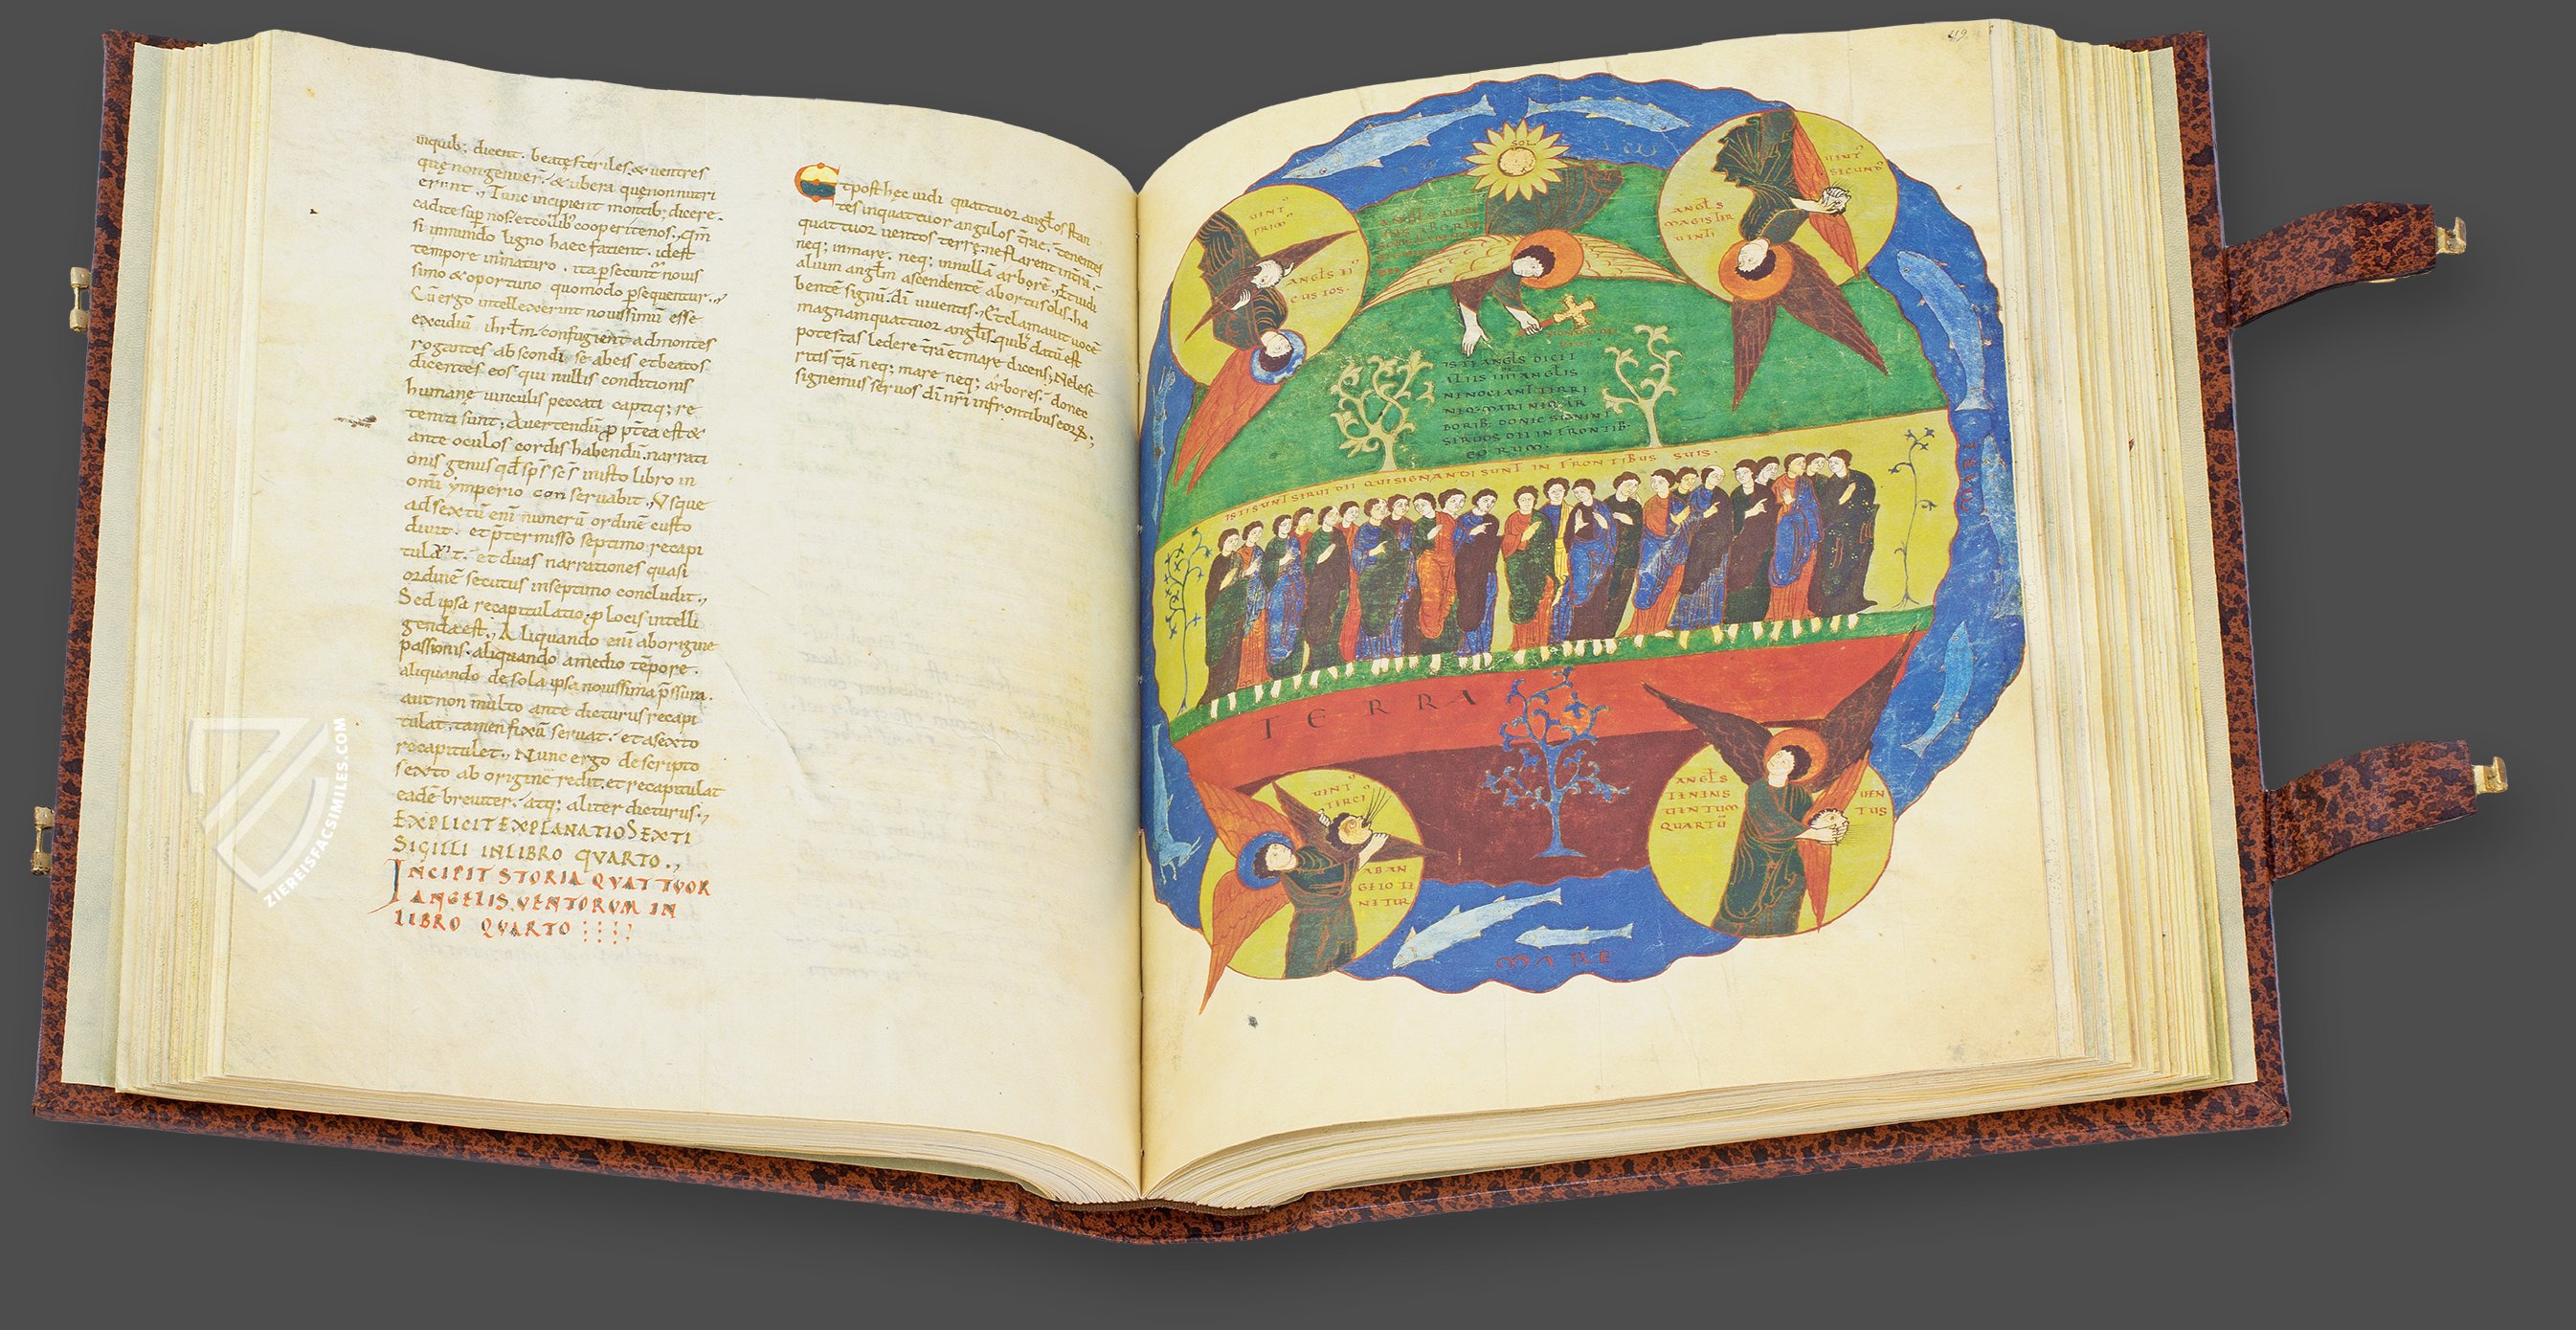 inquib; dicent. beatę steriles & ventres
quę non genuer̄. & ubera quę non nutri
erunt., Tunc incipient montib; dicere.
cadite sup̄ nos. et collib; cooperite nos., Qm̄
si in mundo ligno haec fatient. idest
tempore inmaturo. ita p̄secunt̄ novis
simo & oportuno quomodo p̄sequentur.,
Cū ergo intellexerint novissimū esse
excidiū ihrłm. confugient ad montes
rogantes abscondi se ab eis et beatos
dicentes eos qui nullis conditionis
humanę vinculis peccati captiq; re
tenti sunt; Avertendū p̄ptea est &
ante oculos cordis habendū. narrati
onis genus qđ sp̄s sc̄s in isto libro in
om̄i ymperio conservabit., Usque
ad sextū enī numerū ordinē custo
divit. et p̄termisso septimo recapi
tulat. et duas narrationes quasi
ordinē secutus in septimo concludit.,
Sed ipsa recapitulatio p̄ locis intelli
genda est., Aliquando enī ab origine
passionis. aliquando a medio tēpore.
aliquando de sola ipsa novissima p̄ssura.
aut non multo ante dicturus recapi
tulat. tamen fixū servat. et a sexto
recapitulet., Nunc ergo descripto
sexto ab origine redit. et recapitulat
eadē breviter. atq; aliter dicturus.,
EXPLICIT EXPLANATIO SEXTI
SIGILLI IN LIBRO QVARTO.,
INCIPIT STORIA QVATTVOR
ANGELIS. VENTORVM IN
LIBRO QVARTO
Et post hęc vidi quattuor angłos stan
tes in quattuor angulos t̄rae. tenentes
quattuor ventos terrę. ne flarent in t̄rā.
neq; in mare. neq; in ullā arborē., Et vidi
alium angłm ascendentē ab ortu solis. ha
bentē signū. dī viventis., Et clamavit voce
magnam quattuor angłis. quib; datū est
potestas ledere t̄rā et mare dicens; Ne lese
ritis t̄rā neq; mare neq; arbores. donec
signemus servos dī nr̄i in frontibus eorꝝ;
49
SOL
VENT
PRIM
VENT
SECUND
ANGŁS
MAGISTER
VENTI
ISTE ANGŁS DICIT
ALIIS IIII ANGŁIS
NE NOCEANT TERRE
NEQ. MARI NEQ. AR
BORIB; DONEC SIGNENT
SERVOS DEI IN FRONTIB.
EORUM.
ISTI SUNT SERVI DEI QUI SIGNANDI SUNT IN FRONTIBUS SUIS.
TERRA
VENT
TERCI
AB AN
GELO TE
NETUR
ANGŁS
TENENS
VENTUM
QUARTŪ
VEN
TUS
MARE
ZIEREISFACSIMILES.COM